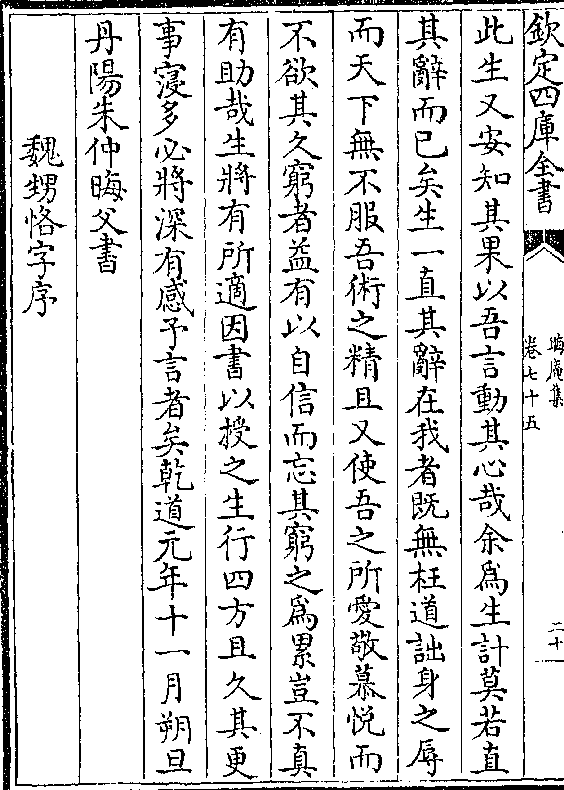 欽定四庫全書
晦庵集
卷七十五
二十
此生又安知其果以吾言動其心哉余為生計莫若直
其辭而已矣生一直其辭在我者既無枉道詘身之辱
而天下無不服吾術之精且又使吾之所愛敬慕悅而
不欲其久窮者益有以自信而忘其窮之為累豈不真
有助哉生將有所適因書以授之生行四方且久其更
事寖多必將深有感予言者矣乾道元年十一月朔旦
丹陽朱仲晦父書
魏甥恪字序